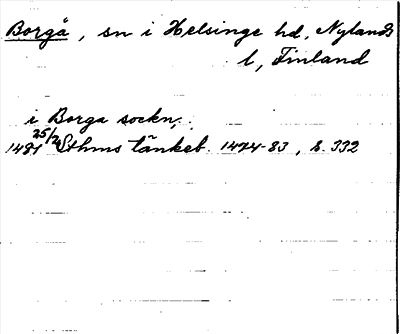 Borgå, sn i Helsinge hd, Nylands
l, Finland
i Borga sockn,
1481 25/2 Sthms tänkeb. 1474-83, s. 332